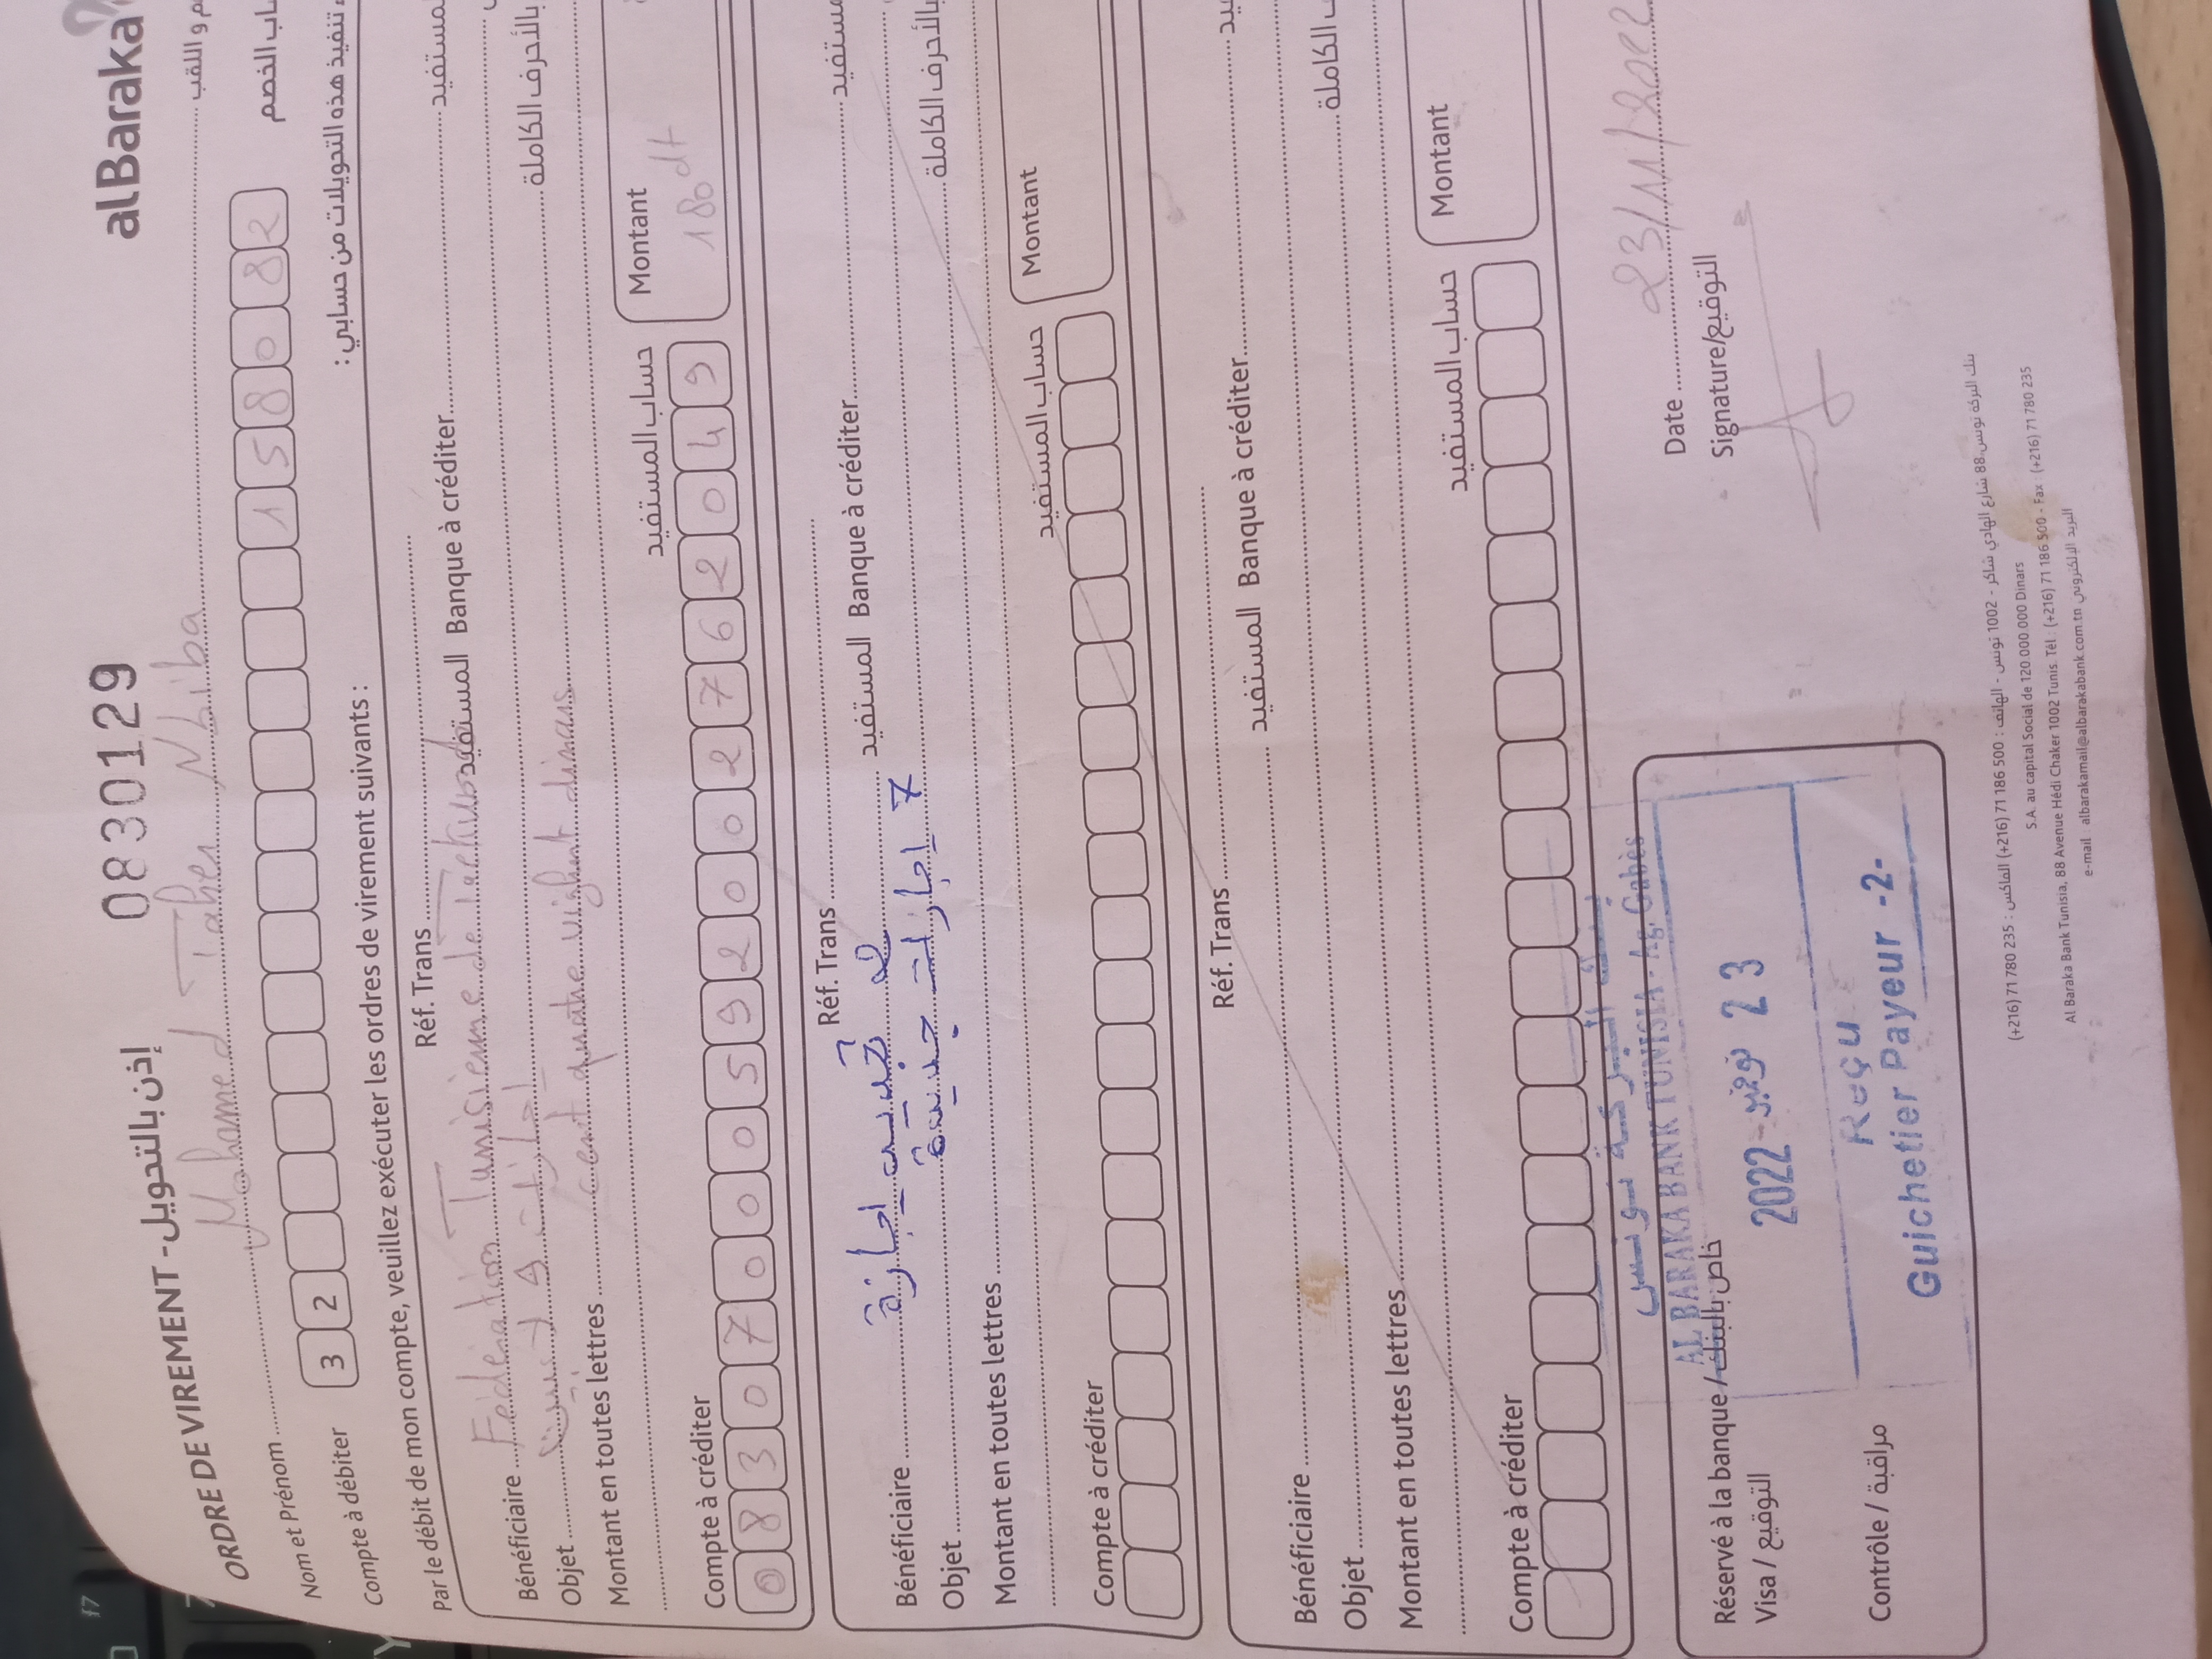 alBaraka
ORDRE DE VIREMENT - إذن بالتحويل 0830129
Nom et Prénom Mohamed Taher Nbiba م و اللقب
Compte à débiter 3 2 1 5 8 0 8 2 ساب الخصم
Par le débit de mon compte, veuillez exécuter les ordres de virement suivants : تنفيذ هذه التحويلات من حسابي :
Réf. Trans
Bénéficiaire Fédération Tunisienne de المستفيد Banque à créditer
Objet
Montant en toutes lettres cent quatre vight dinars بالأحرف الكاملة
Compte à créditer حساب المستفيد Montant
0 8 3 0 7 0 0 0 5 9 2 0 0 2 7 6 2 0 4 9 180 dt
Réf. Trans
Bénéficiaire اجازة المستفيد Banque à créditer مستفيد
Objet جديدة اجازات 7
Montant en toutes lettres بالأحرف الكاملة
Compte à créditer حساب المستفيد Montant
Réf. Trans
Bénéficiaire المستفيد Banque à créditer
Objet
Montant en toutes lettres الكاملة
Compte à créditer حساب المستفيد Montant
بنك البركة تونس
AL BARAKA BANK TUNISIA - Ag. Gabès
Réservé à la banque / خاص بالبنك Date 23/11/2022
Visa / التوقيع Signature/التوقيع
2022 نوفمبر 23
Reçu
Contrôle / مراقبة Guichetier Payeur -2-
بنك البركة تونس 88 شارع الهادي شاكر - 1002 تونس - الهاتف : 500 186 71 (216+) الفاكس : 235 780 71 (216+)
S.A. au capital Social de 120 000 000 Dinars
Al Baraka Bank Tunisia, 88 Avenue Hédi Chaker 1002 Tunis. Tél : (+216) 71 186 500 - Fax : (+216) 71 780 235
e-mail : albarakamail@albarakabank.com.tn البريد الإلكتروني
f7
Y